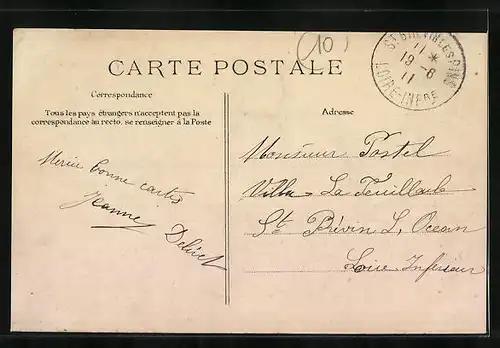 (10)
ST BREVIN LES PINS
11 *
19 -8
11
LOIRE-INFRE
CARTE POSTALE
Correspondance
Tous les pays étrangers n'acceptent pas la
correspondance au recto, se renseigner à la Poste
Adresse
Merci bonne cartes
Jeanne
Monsieur Postel
Villa La Feuillade
St Brévin L. Ocean
Loire Inférieur